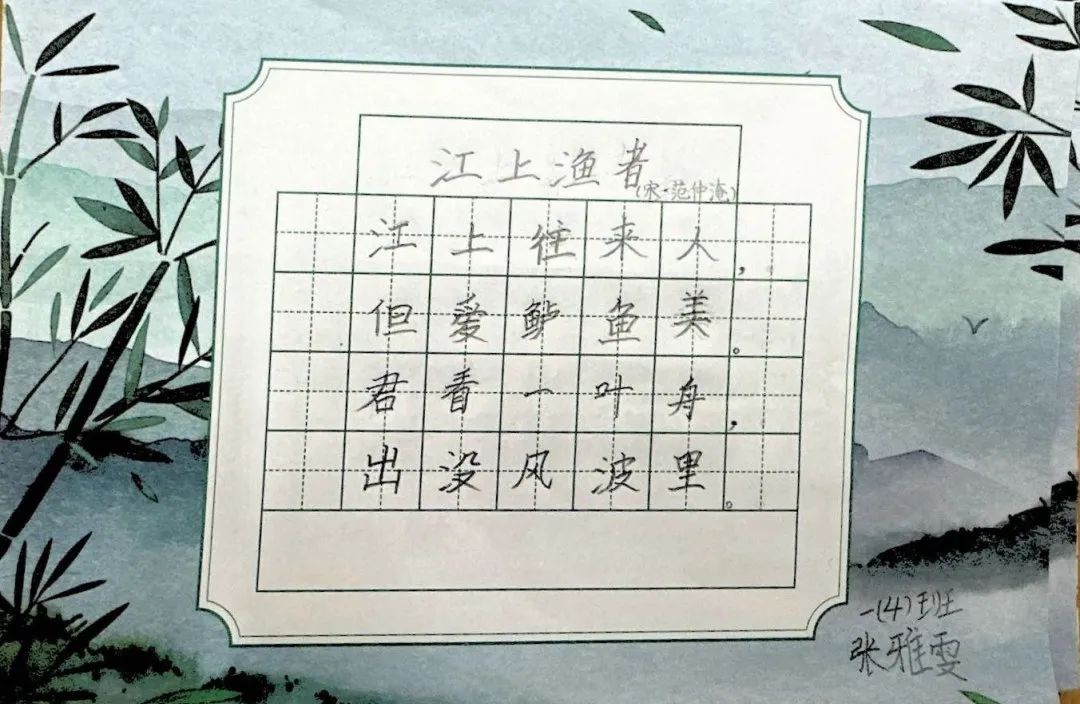 江上渔者
(宋·范仲淹)
江上往来人，
但爱鲈鱼美。
君看一叶舟，
出没风波里。
一(4)班
张雅雯